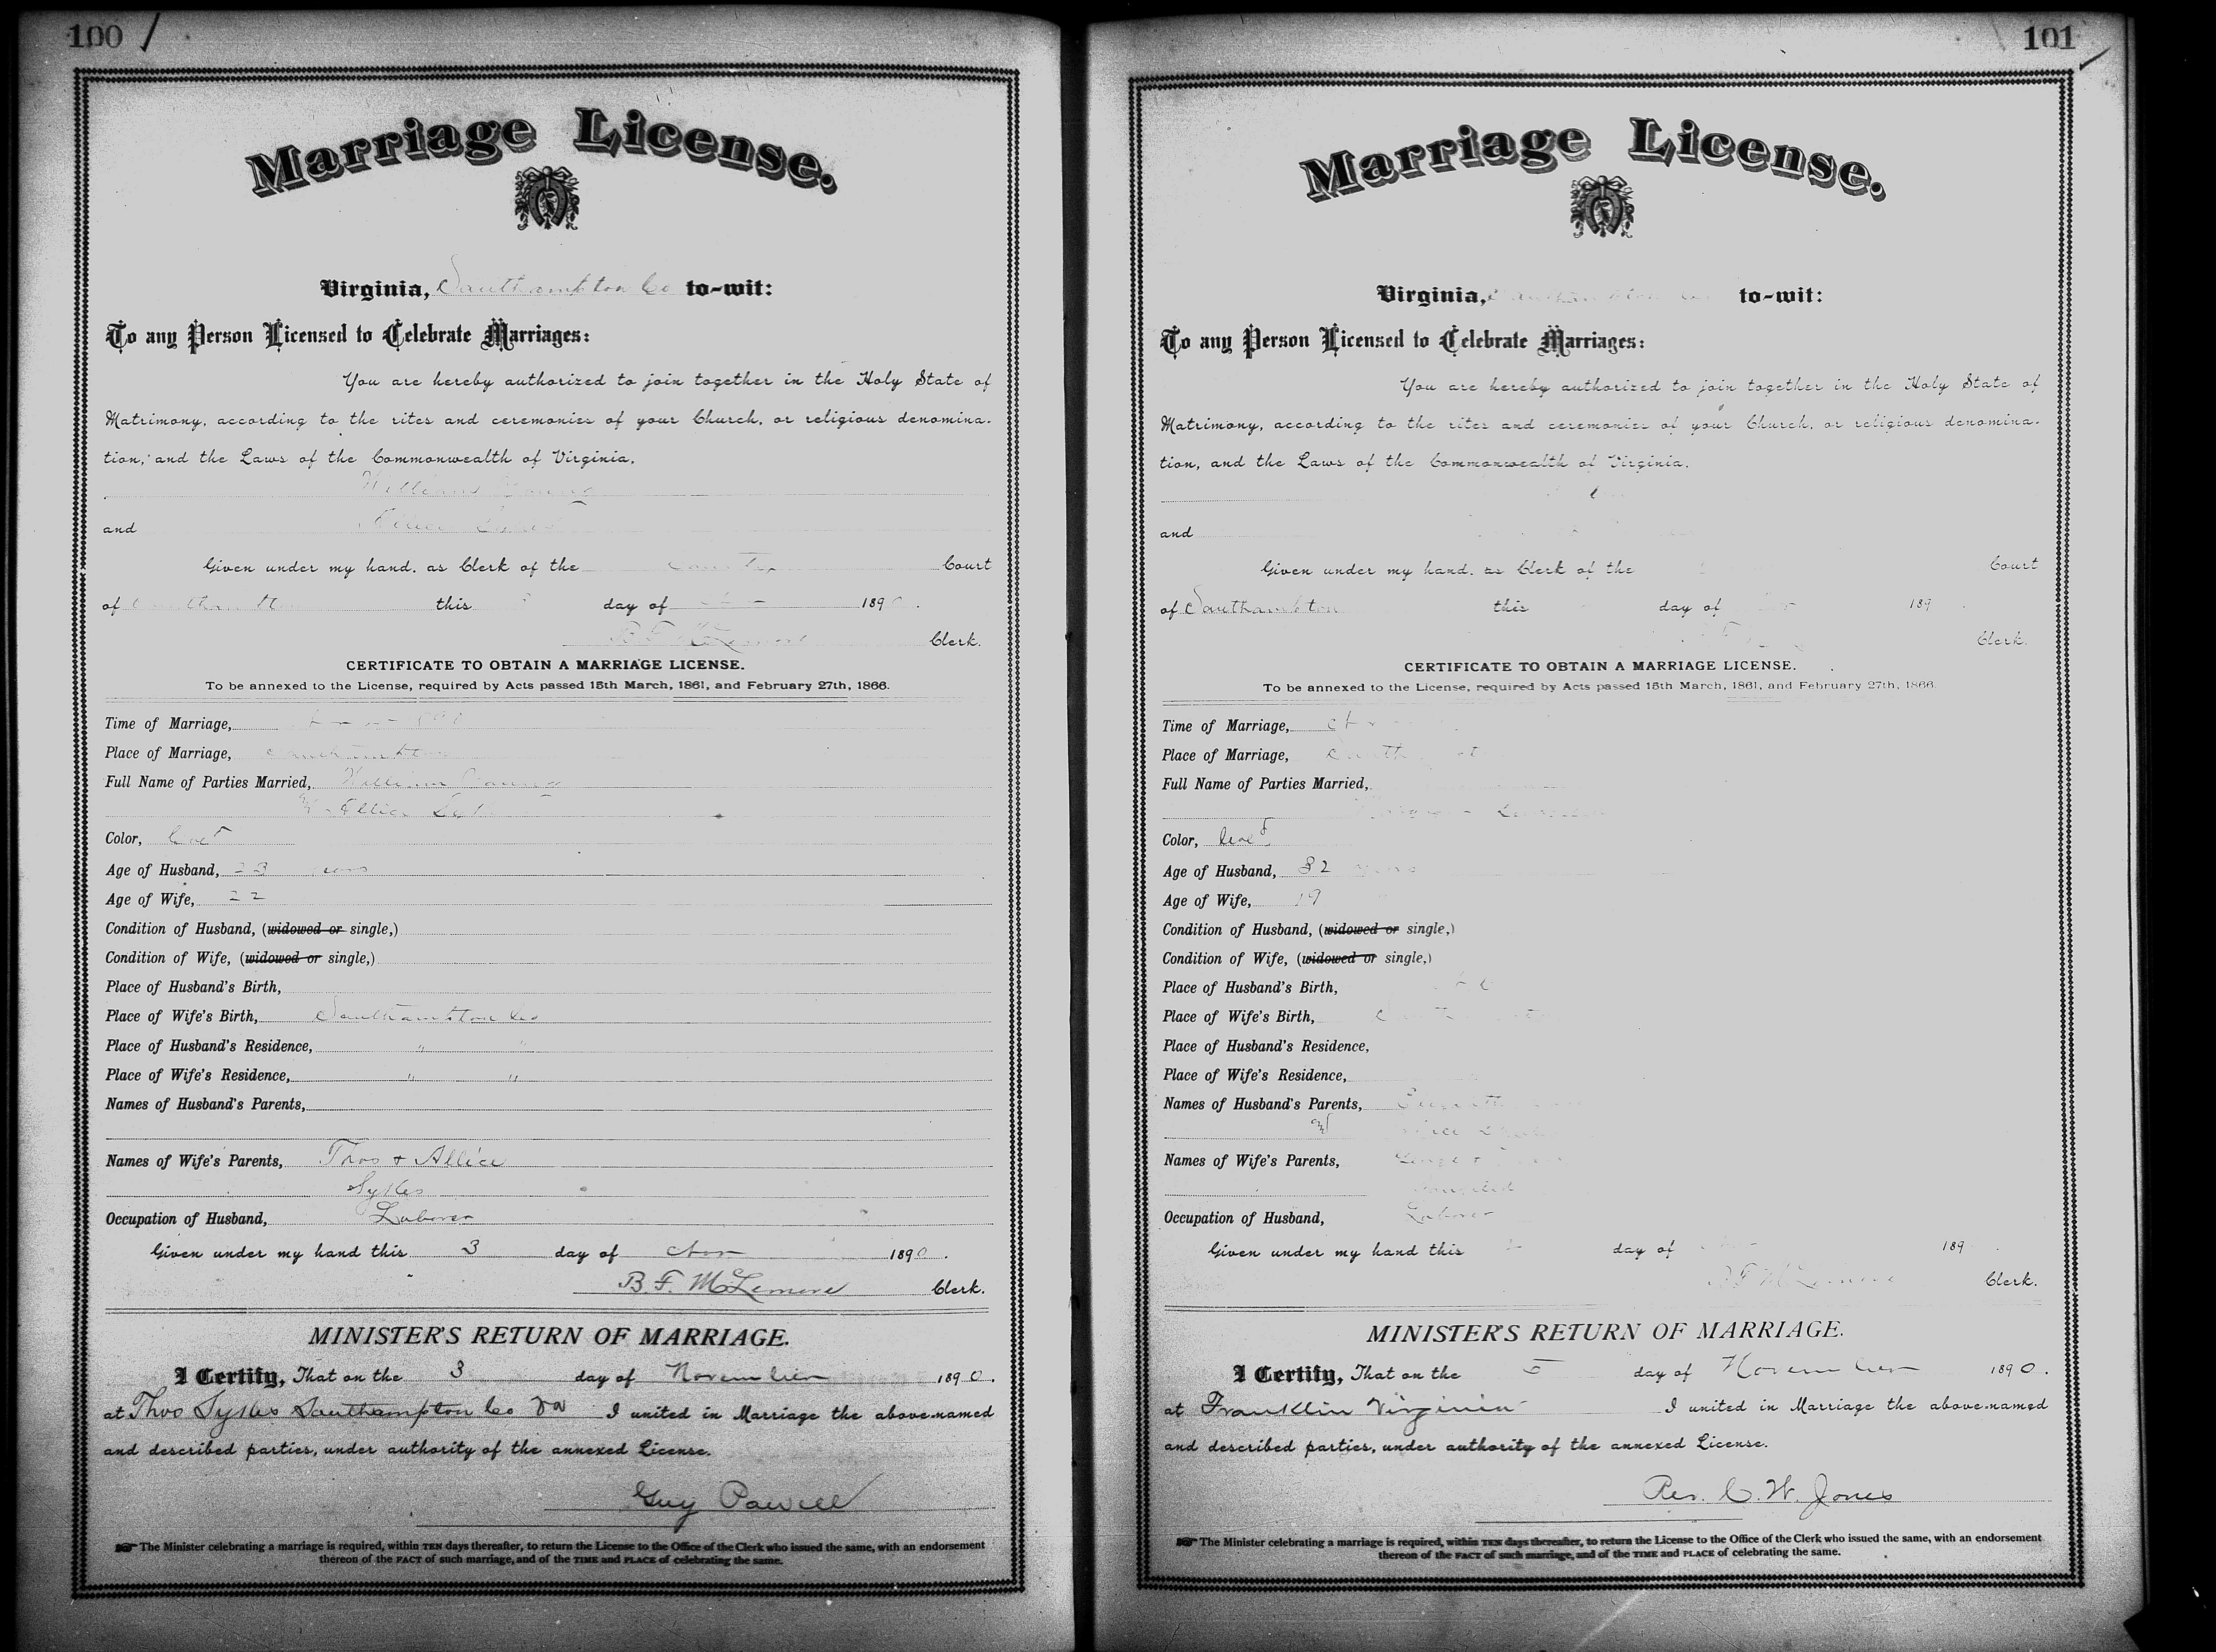 100
Marriage License.
Virginia, Southampton Co to-wit:
To any Person Licensed to Celebrate Marriages:
You are hereby authorized to join together in the Holy State of
Matrimony, according to the rites and ceremonies of your Church, or religious denomina-
tion, and the Laws of the Commonwealth of Virginia.
William Young
and
Given under my hand, as Clerk of the County Court
of Southampton this day of 1890.
B. F. McLemore Clerk.
CERTIFICATE TO OBTAIN A MARRIAGE LICENSE.
To be annexed to the License, required by Acts passed 15th March, 1861, and February 27th, 1866.
Time of Marriage,
Place of Marriage, Southampton
Full Name of Parties Married, William Young
Color, Cold
Age of Husband, 23 years
Age of Wife, 22
Condition of Husband, (widowed or single,)
Condition of Wife, (widowed or single,)
Place of Husband's Birth,
Place of Wife's Birth, Southampton Co
Place of Husband's Residence, " "
Place of Wife's Residence, " "
Names of Husband's Parents,
Names of Wife's Parents, Thos + Allice
Sykes
Occupation of Husband, Laborer
Given under my hand this 3 day of Nov 1890.
B. F. McLemore Clerk.
MINISTER'S RETURN OF MARRIAGE.
I Certify, That on the 3 day of November 1890.
at Thos Sykes Southampton Co Va I united in Marriage the above-named
and described parties, under authority of the annexed License.
Guy Powell
The Minister celebrating a marriage is required, within TEN days thereafter, to return the License to the Office of the Clerk who issued the same, with an endorsement
thereon of the FACT of such marriage, and of the TIME and PLACE of celebrating the same.
101
Marriage License.
Virginia, to-wit:
To any Person Licensed to Celebrate Marriages:
You are hereby authorized to join together in the Holy State of
Matrimony, according to the rites and ceremonies of your Church, or religious denomina-
tion, and the Laws of the Commonwealth of Virginia.
and
Given under my hand, as Clerk of the Court
of Southampton this day of 189 .
Clerk.
CERTIFICATE TO OBTAIN A MARRIAGE LICENSE.
To be annexed to the License, required by Acts passed 15th March, 1861, and February 27th, 1866.
Time of Marriage,
Place of Marriage,
Full Name of Parties Married,
Color, Cold
Age of Husband, 32 years
Age of Wife, 19
Condition of Husband, (widowed or single,)
Condition of Wife, (widowed or single,)
Place of Husband's Birth,
Place of Wife's Birth,
Place of Husband's Residence,
Place of Wife's Residence,
Names of Husband's Parents,
Names of Wife's Parents,
Occupation of Husband, Laborer
Given under my hand this day of 189 .
B F McLemore Clerk.
MINISTER'S RETURN OF MARRIAGE.
I Certify, That on the 5 day of November 1890.
at Franklin Virginia I united in Marriage the above-named
and described parties, under authority of the annexed License.
Rev. C. W. Jones
The Minister celebrating a marriage is required, within TEN days thereafter, to return the License to the Office of the Clerk who issued the same, with an endorsement
thereon of the FACT of such marriage, and of the TIME and PLACE of celebrating the same.